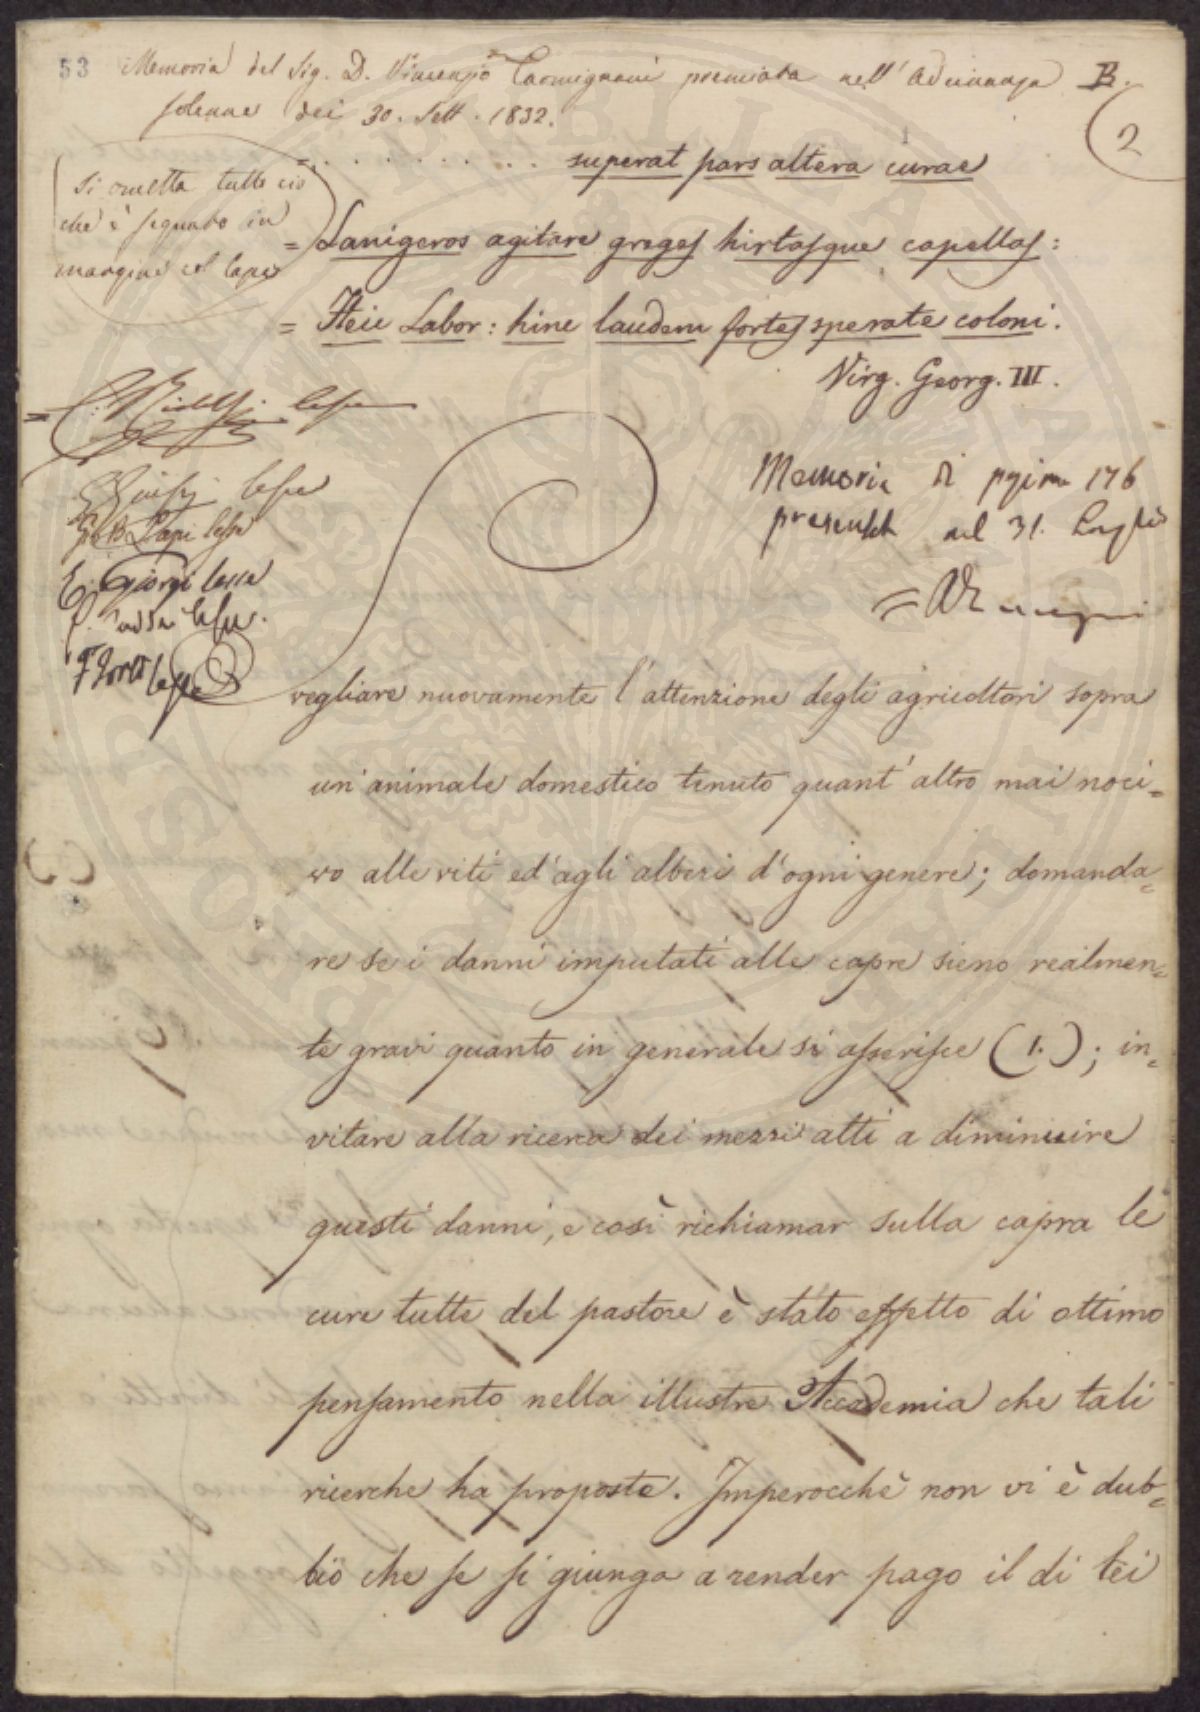 53 Memoria del Sig. D. Vincenzio Carmignani premiata nell' Adunanza B.
solenne dei 30. Sett. 1832.
2
= . . . . . . . . . . superat pars altera curae
Si ometta tutto ciò
che è segnato in
margine col lapis
= Lanigeros agitare greges hirtasque capellas:
= Heic Labor: hinc laudem fortes sperate coloni.
Virg. Georg. III.
Ridolfi lesse
lesse
Lapi lesse
E. Giorgi lesse
lesse.
lesse
Memoria di pagine 176
presentata nel 31. Luglio
Svegliare nuovamente l'attenzione degli agricoltori sopra
un'animale domestico tenuto quant'altro mai noci=
vo alle viti ed'agli alberi d'ogni genere; domanda=
re se i danni imputati alle capre sieno realmen=
te gravi quanto in generale si asserisce (1.); in=
vitare alla ricerca dei mezzi atti a diminuire
questi danni, e così richiamar sulla capra le
cure tutte del pastore è stato effetto di ottimo
pensamento nella illustre Accademia che tali
ricerche ha proposte. Imperocchè non vi è dub=
bio che se si giunga a render pago il di lei